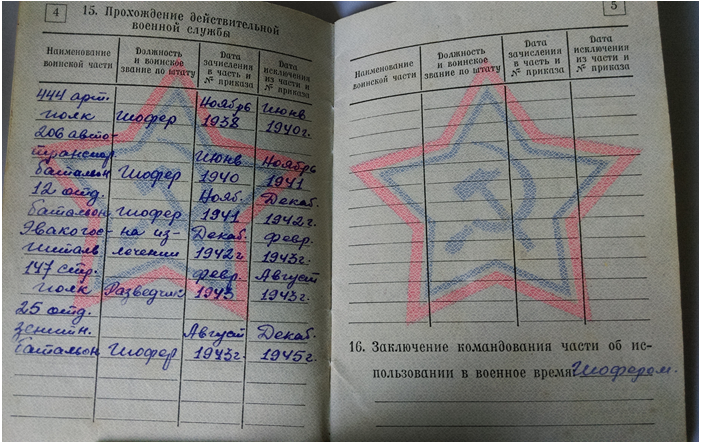 4
15. Прохождение действительной
военной службы
Наименование воинской части
Должность и воинское звание по штату
Дата зачисления в часть и № приказа
Дата исключения из части и № приказа
444 арт. Ноябрь Июнь
полк Шофер 1938 1940г.
206 авто-
транспор. Июнь Ноябрь
батальон Шофер 1940 1941
12 отд. Нояб. Декаб.
батальон шофер 1941 1942г.
Эвакогос- на из- Декаб. февр.
питаль лечении 1942г 1943г.
147 стр. февр. Август
полк Разведчик 1943 1943г.
25 отд.
зенитн. Август Декаб.
батальон Шофер 1943г. 1945г.
5
Наименование воинской части
Должность и воинское звание по штату
Дата зачисления в часть и № приказа
Дата исключения из части и № приказа
16. Заключение командования части об ис-
пользовании в военное время Шофером.